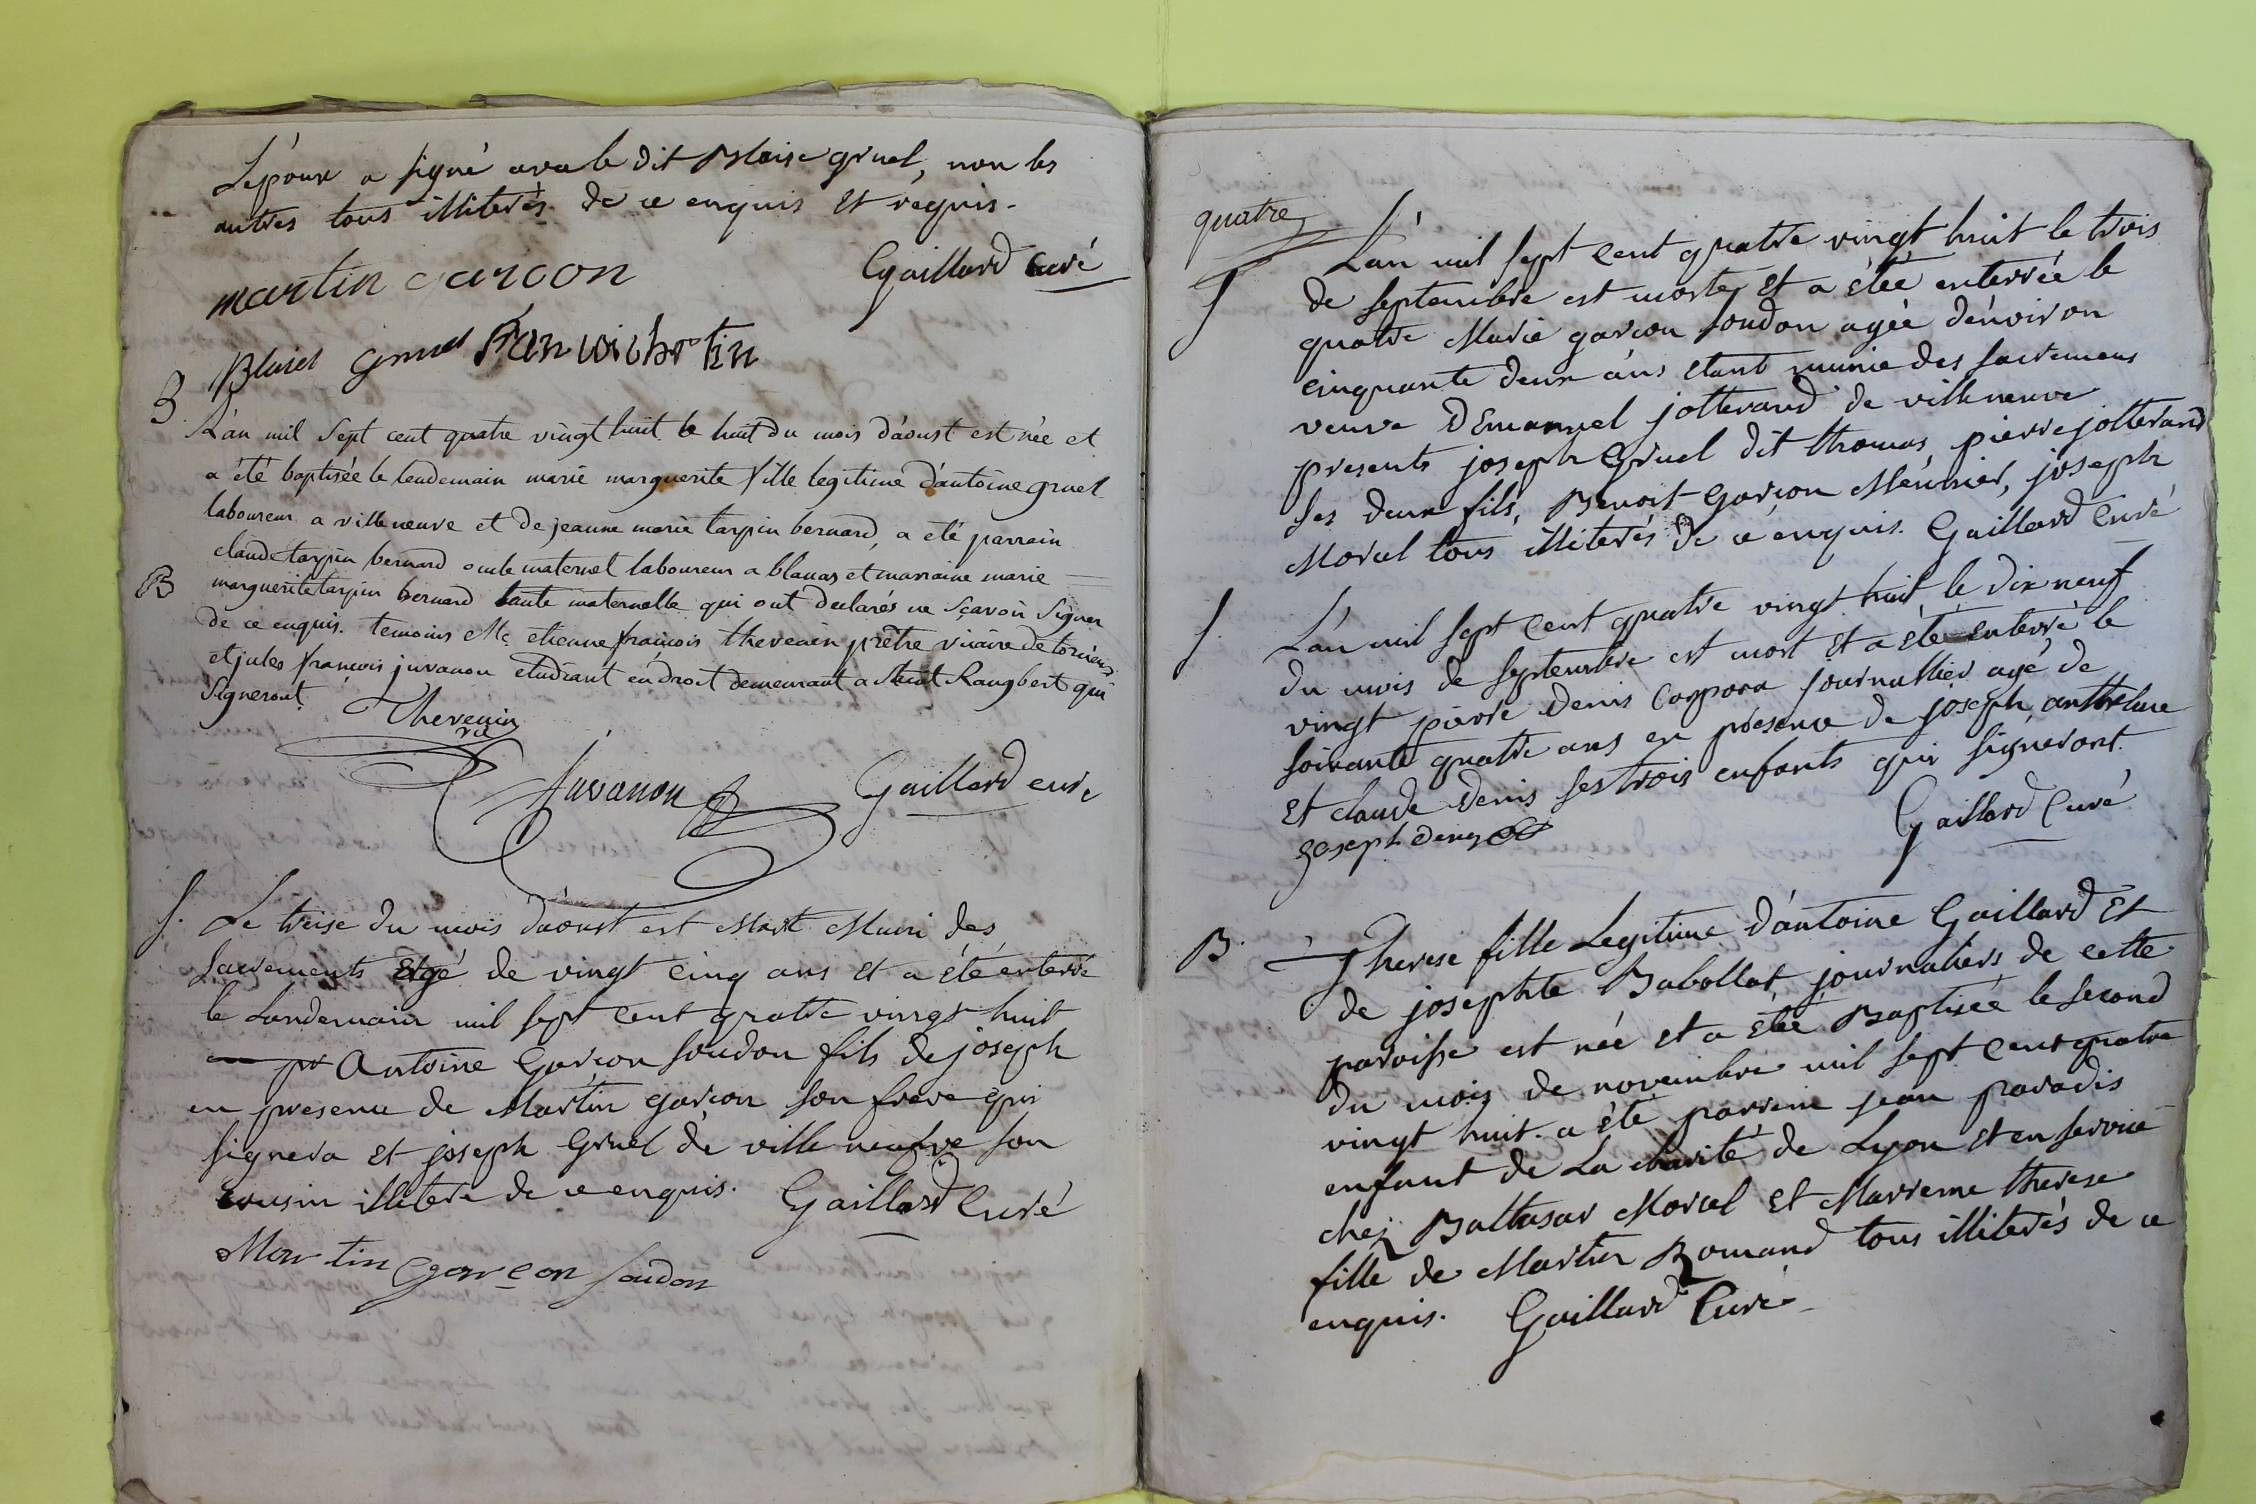 L'époux a signé avec le dit Blaise gruel, non les
autres tous illiterés de ce enquis Et requis.
Gaillard Curé
martin garcon
Blaise Gruel
B.
L'án mil sept cent quatre vingt huit le huit du mois d'áoust est née et
a été baptisée le lendemain marie marguerite fille legitime d'ántoine gruel
laboureur a villeneuve et de jeanne marie tarpin bernard, a été parrain
claude tarpin bernard oncle maternel laboureur a blanas et marraine marie
B
marguerite tarpin bernard tante maternelle qui ont declarés ne sçavoir signer
de ce enquis. temoins Me etienne françois thevenin prêtre vicaire de
et jules françois juvanon etudiant en droit demeurant a Saint Rangbert qui
signeront.
Thevenin
vic
Juvanon
Gaillard curé
S. Le treise du mois d'aoust est Mort Muni des
sacrements agé de vingt cinq ans Et a été enterré
le Landemain mil sept cent quatre vingt huit
Antoine Garcon soudon fils de joseph
en presence de Martin garcon son frere qui
signera Et joseph Gruel de ville neufve son
cousin illiteré de ce enquis. Gaillard Curé
Martin Garcon soudon
quatre
S L'án mil sept Cent quatre vingt huit le trois
de septembre est morte Et a étéé enterrée le
quatre Marie garcon soudon agéé d'énviron
cinquante deux áns Etant munie des sacremens
veuve D'Emanuel jotterand de villeneuve
presents joseph Gruel dit thomas, pierre jotterand
ses deux fils, Benoit Garcon Méunier, joseph
Morel tous illiterés de ce enquis. Gaillard Curé
S. L'án mil sept Cent quatre vingt huit le dix neuf
du mois de septembre est mort Et a été Enterré le
vingt pierre Denis Corpora journallier agé de
soixante quatre ans en présence de joseph, anthelme
Et claude Denis ses trois enfants qui signeront.
Gaillard Curé
Joseph denys
B. Therese fille Legitime d'ántoine Gaillard Et
de josephte Babollat journaliers de cette
paroisse est née Et a été Baptisée le second
du mois de novembre mil sept Cent quatre
vingt huit. a été parrein jean paradis
enfant de La charité de Lyon Et en service
chez Baltasar Morel Et Marreine therese
fille de Martin Romand tous illiterés de ce
enquis. Gaillard Curé